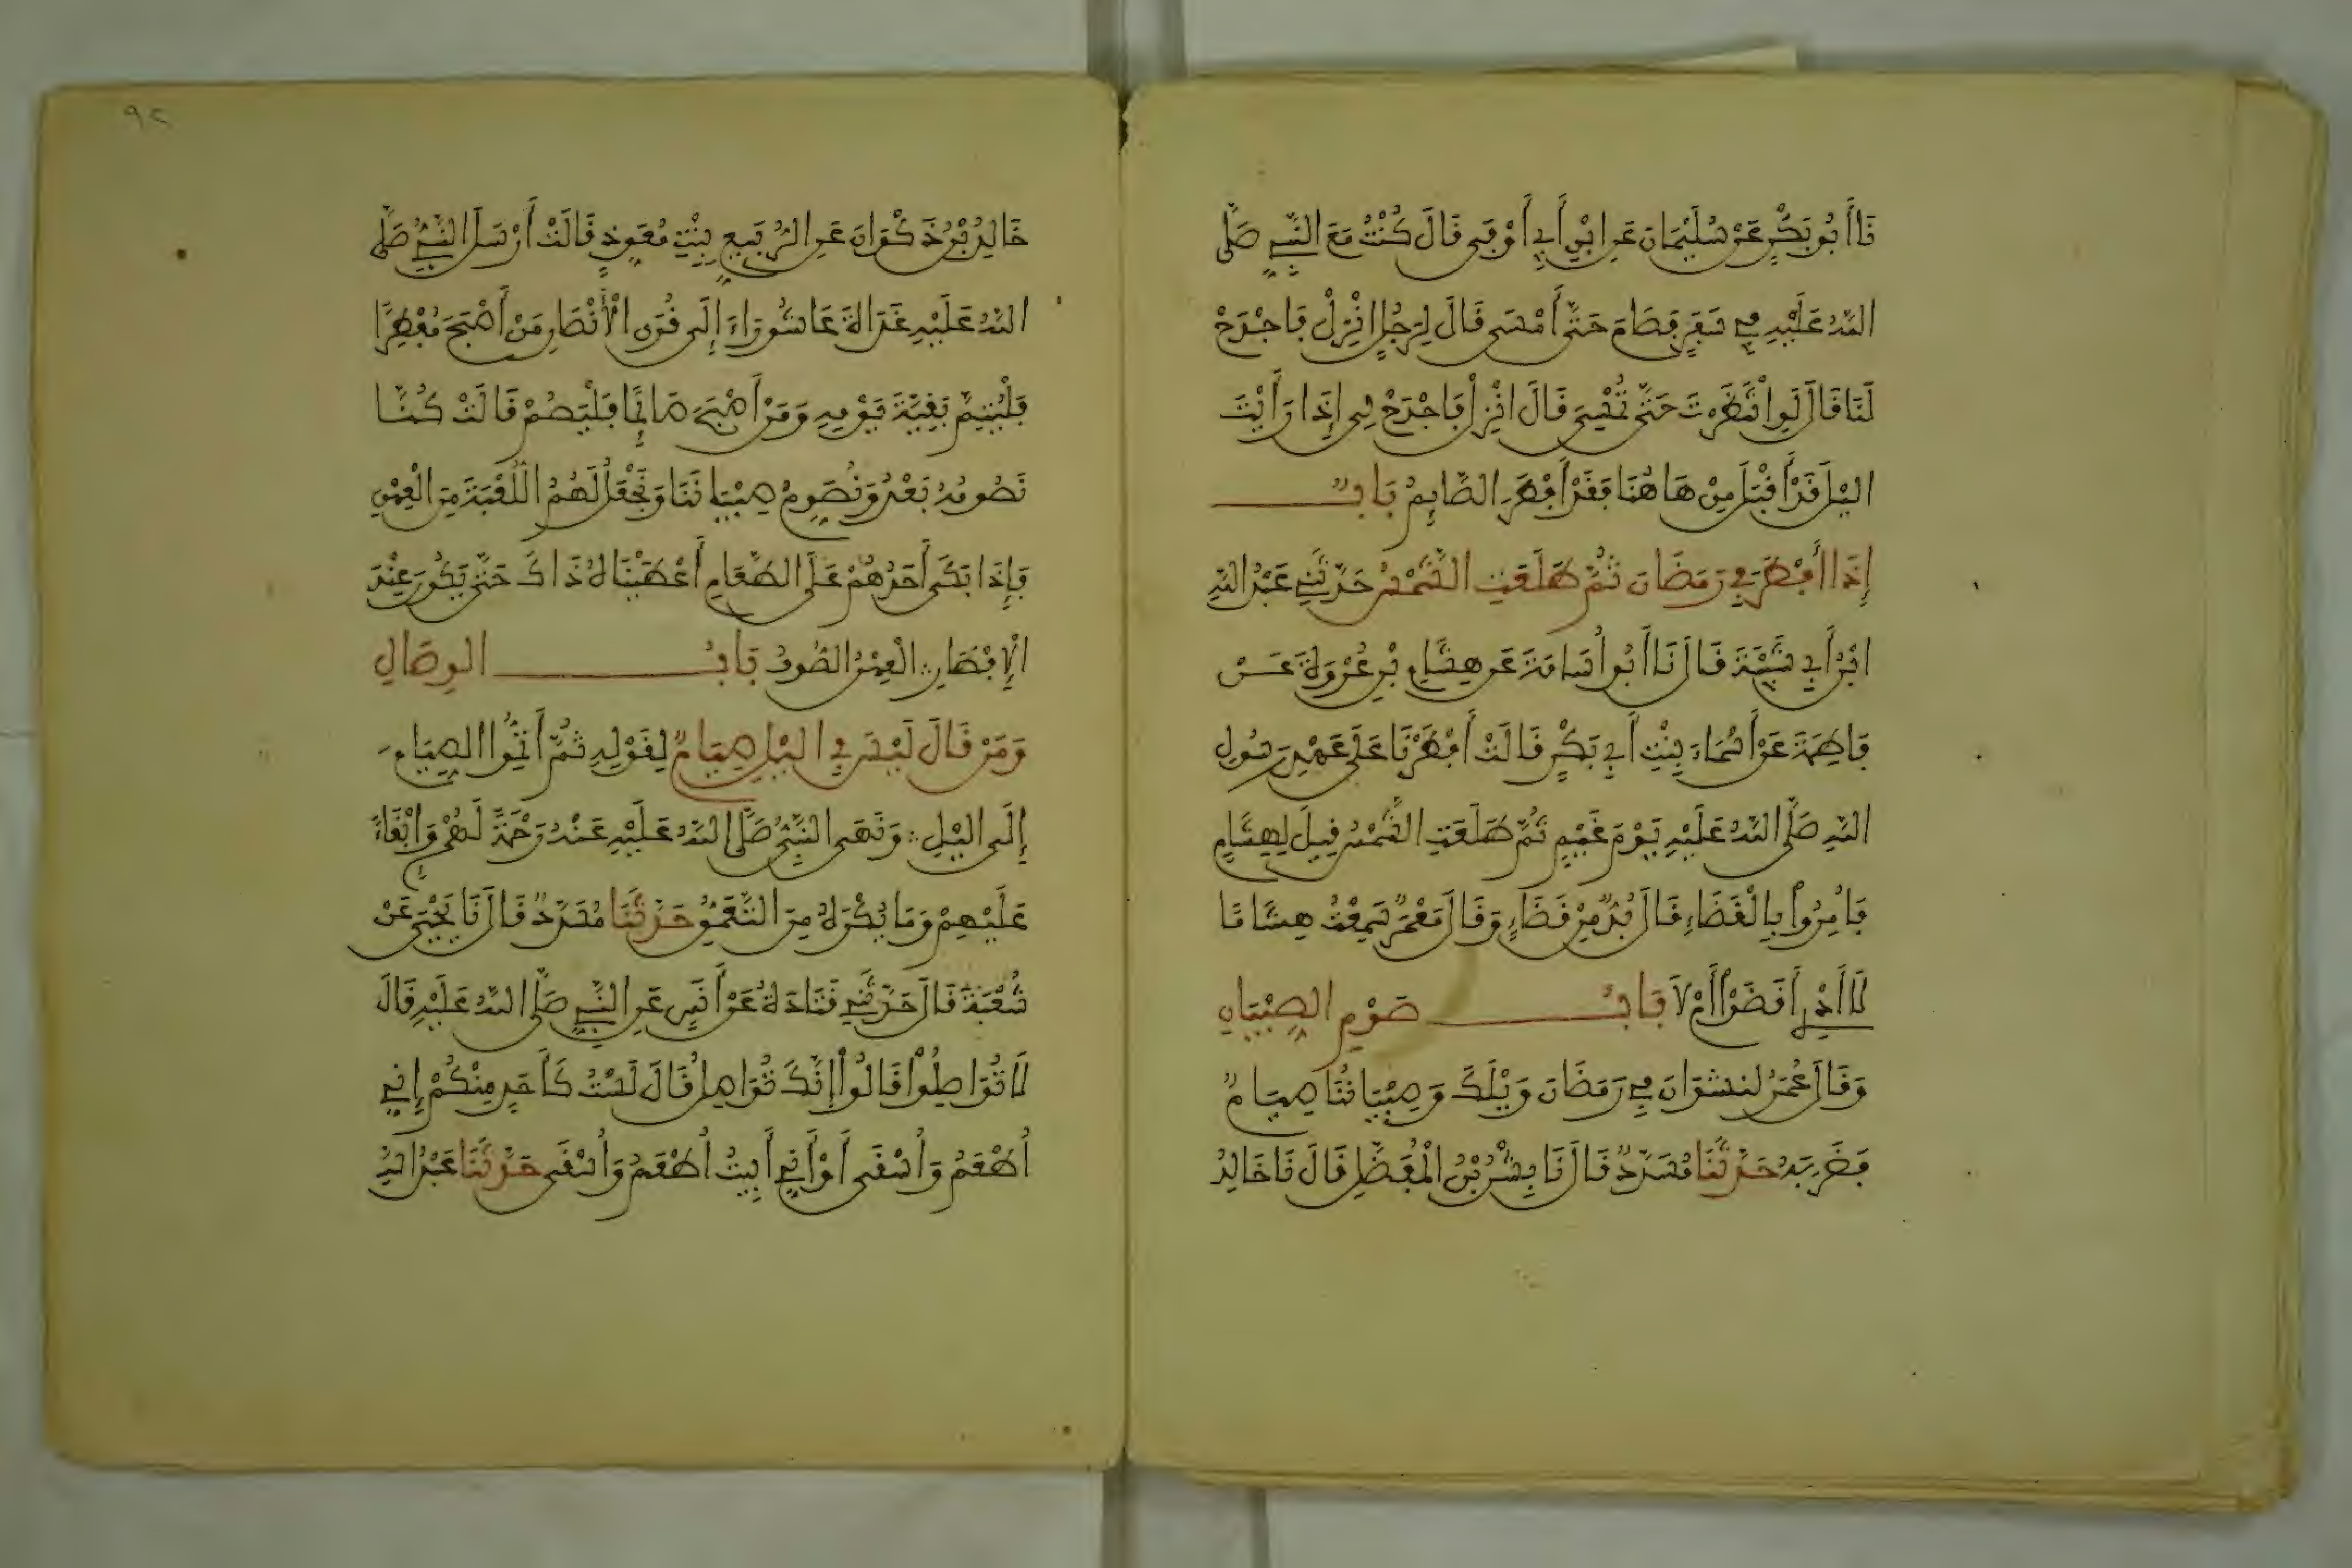 نَا أَبُو بَكْرٍ عَنْ سُلَيْمَانَ عَنِ ابْنِ أَبِي أَوْفَى قَالَ كُنْتُ مَعَ النَّبِيِّ صَلَّى
اللَّهُ عَلَيْهِ فِي سَفَرٍ فَصَامَ حَتَّى أَمْسَى قَالَ لِرَجُلٍ انْزِلْ فَاجْدَحْ
لَنَا قَالَ لَوِ انْتَظَرْتَ حَتَّى تُمْسِيَ قَالَ انْزِلْ فَاجْدَحْ لِي إِذَا رَأَيْتَ
اللَّيْلَ قَدْ أَقْبَلَ مِنْ هَاهُنَا فَقَدْ أَفْطَرَ الصَّائِمُ بَابٌ
إِذَا أَفْطَرَ فِي رَمَضَانَ ثُمَّ طَلَعَتِ الشَّمْسُ حَدَّثَنِي عَبْدُ اللَّهِ
ابْنُ أَبِي شَيْبَةَ قَالَ نَا أَبُو أُسَامَةَ عَنْ هِشَامِ بْنِ عُرْوَةَ عَنْ
فَاطِمَةَ عَنْ أَسْمَاءَ بِنْتِ أَبِي بَكْرٍ قَالَتْ أَفْطَرْنَا عَلَى عَهْدِ رَسُولِ
اللَّهِ صَلَّى اللَّهُ عَلَيْهِ يَوْمَ غَيْمٍ ثُمَّ طَلَعَتِ الشَّمْسُ قِيلَ لِهِشَامٍ
فَأُمِرُوا بِالْقَضَاءِ قَالَ بُدٌّ مِنْ قَضَاءٍ وَقَالَ مَعْمَرٌ سَمِعْتُ هِشَامًا
لَا أَدْرِي أَقَضَوْا أَمْ لَا بَابُ صَوْمِ الصِّبْيَانِ
وَقَالَ عُمَرُ لِنَشْوَانَ فِي رَمَضَانَ وَيْلَكَ وَصِبْيَانُنَا صِيَامٌ
فَضَرَبَهُ حَدَّثَنَا مُسَدَّدٌ قَالَ نَا بِشْرُ بْنُ الْمُفَضَّلِ قَالَ نَا خَالِدُ
٩٢
خَالِدُ بْنُ ذَكْوَانَ عَنِ الرُّبَيِّعِ بِنْتِ مُعَوِّذٍ قَالَتْ أَرْسَلَ النَّبِيُّ صَلَّى
اللَّهُ عَلَيْهِ غَدَاةَ عَاشُورَاءَ إِلَى قُرَى الْأَنْصَارِ مَنْ أَصْبَحَ مُفْطِرًا
فَلْيُتِمَّ بَقِيَّةَ يَوْمِهِ وَمَنْ أَصْبَحَ صَائِمًا فَلْيَصُمْ قَالَتْ كُنَّا
نَصُومُهُ بَعْدُ وَنُصَوِّمُ صِبْيَانَنَا وَنَجْعَلُ لَهُمُ اللُّعْبَةَ مِنَ الْعِهْنِ
فَإِذَا بَكَى أَحَدُهُمْ عَلَى الطَّعَامِ أَعْطَيْنَاهُ ذَاكَ حَتَّى يَكُونَ عِنْدَ
الْإِفْطَارِ الْعِهْنُ الصُّوفُ بَابُ الْوِصَالِ
وَمَنْ قَالَ لَيْسَ فِي اللَّيْلِ صِيَامٌ لِقَوْلِهِ ثُمَّ أَتِمُّوا الصِّيَامَ
إِلَى اللَّيْلِ وَنَهَى النَّبِيُّ صَلَّى اللَّهُ عَلَيْهِ عَنْهُ رَحْمَةً لَهُمْ وَإِبْقَاءً
عَلَيْهِمْ وَمَا يُكْرَهُ مِنَ التَّعَمُّقِ حَدَّثَنَا مُسَدَّدٌ قَالَ نَا يَحْيَى عَنْ
شُعْبَةَ قَالَ حَدَّثَنِي قَتَادَةُ عَنْ أَنَسٍ عَنِ النَّبِيِّ صَلَّى اللَّهُ عَلَيْهِ قَالَ
لَا تُوَاصِلُوا قَالُوا إِنَّكَ تُوَاصِلُ قَالَ لَسْتُ كَأَحَدٍ مِنْكُمْ إِنِّي
أُطْعَمُ وَأُسْقَى أَوْ إِنِّي أَبِيتُ أُطْعَمُ وَأُسْقَى حَدَّثَنَا عَبْدُ اللَّهِ